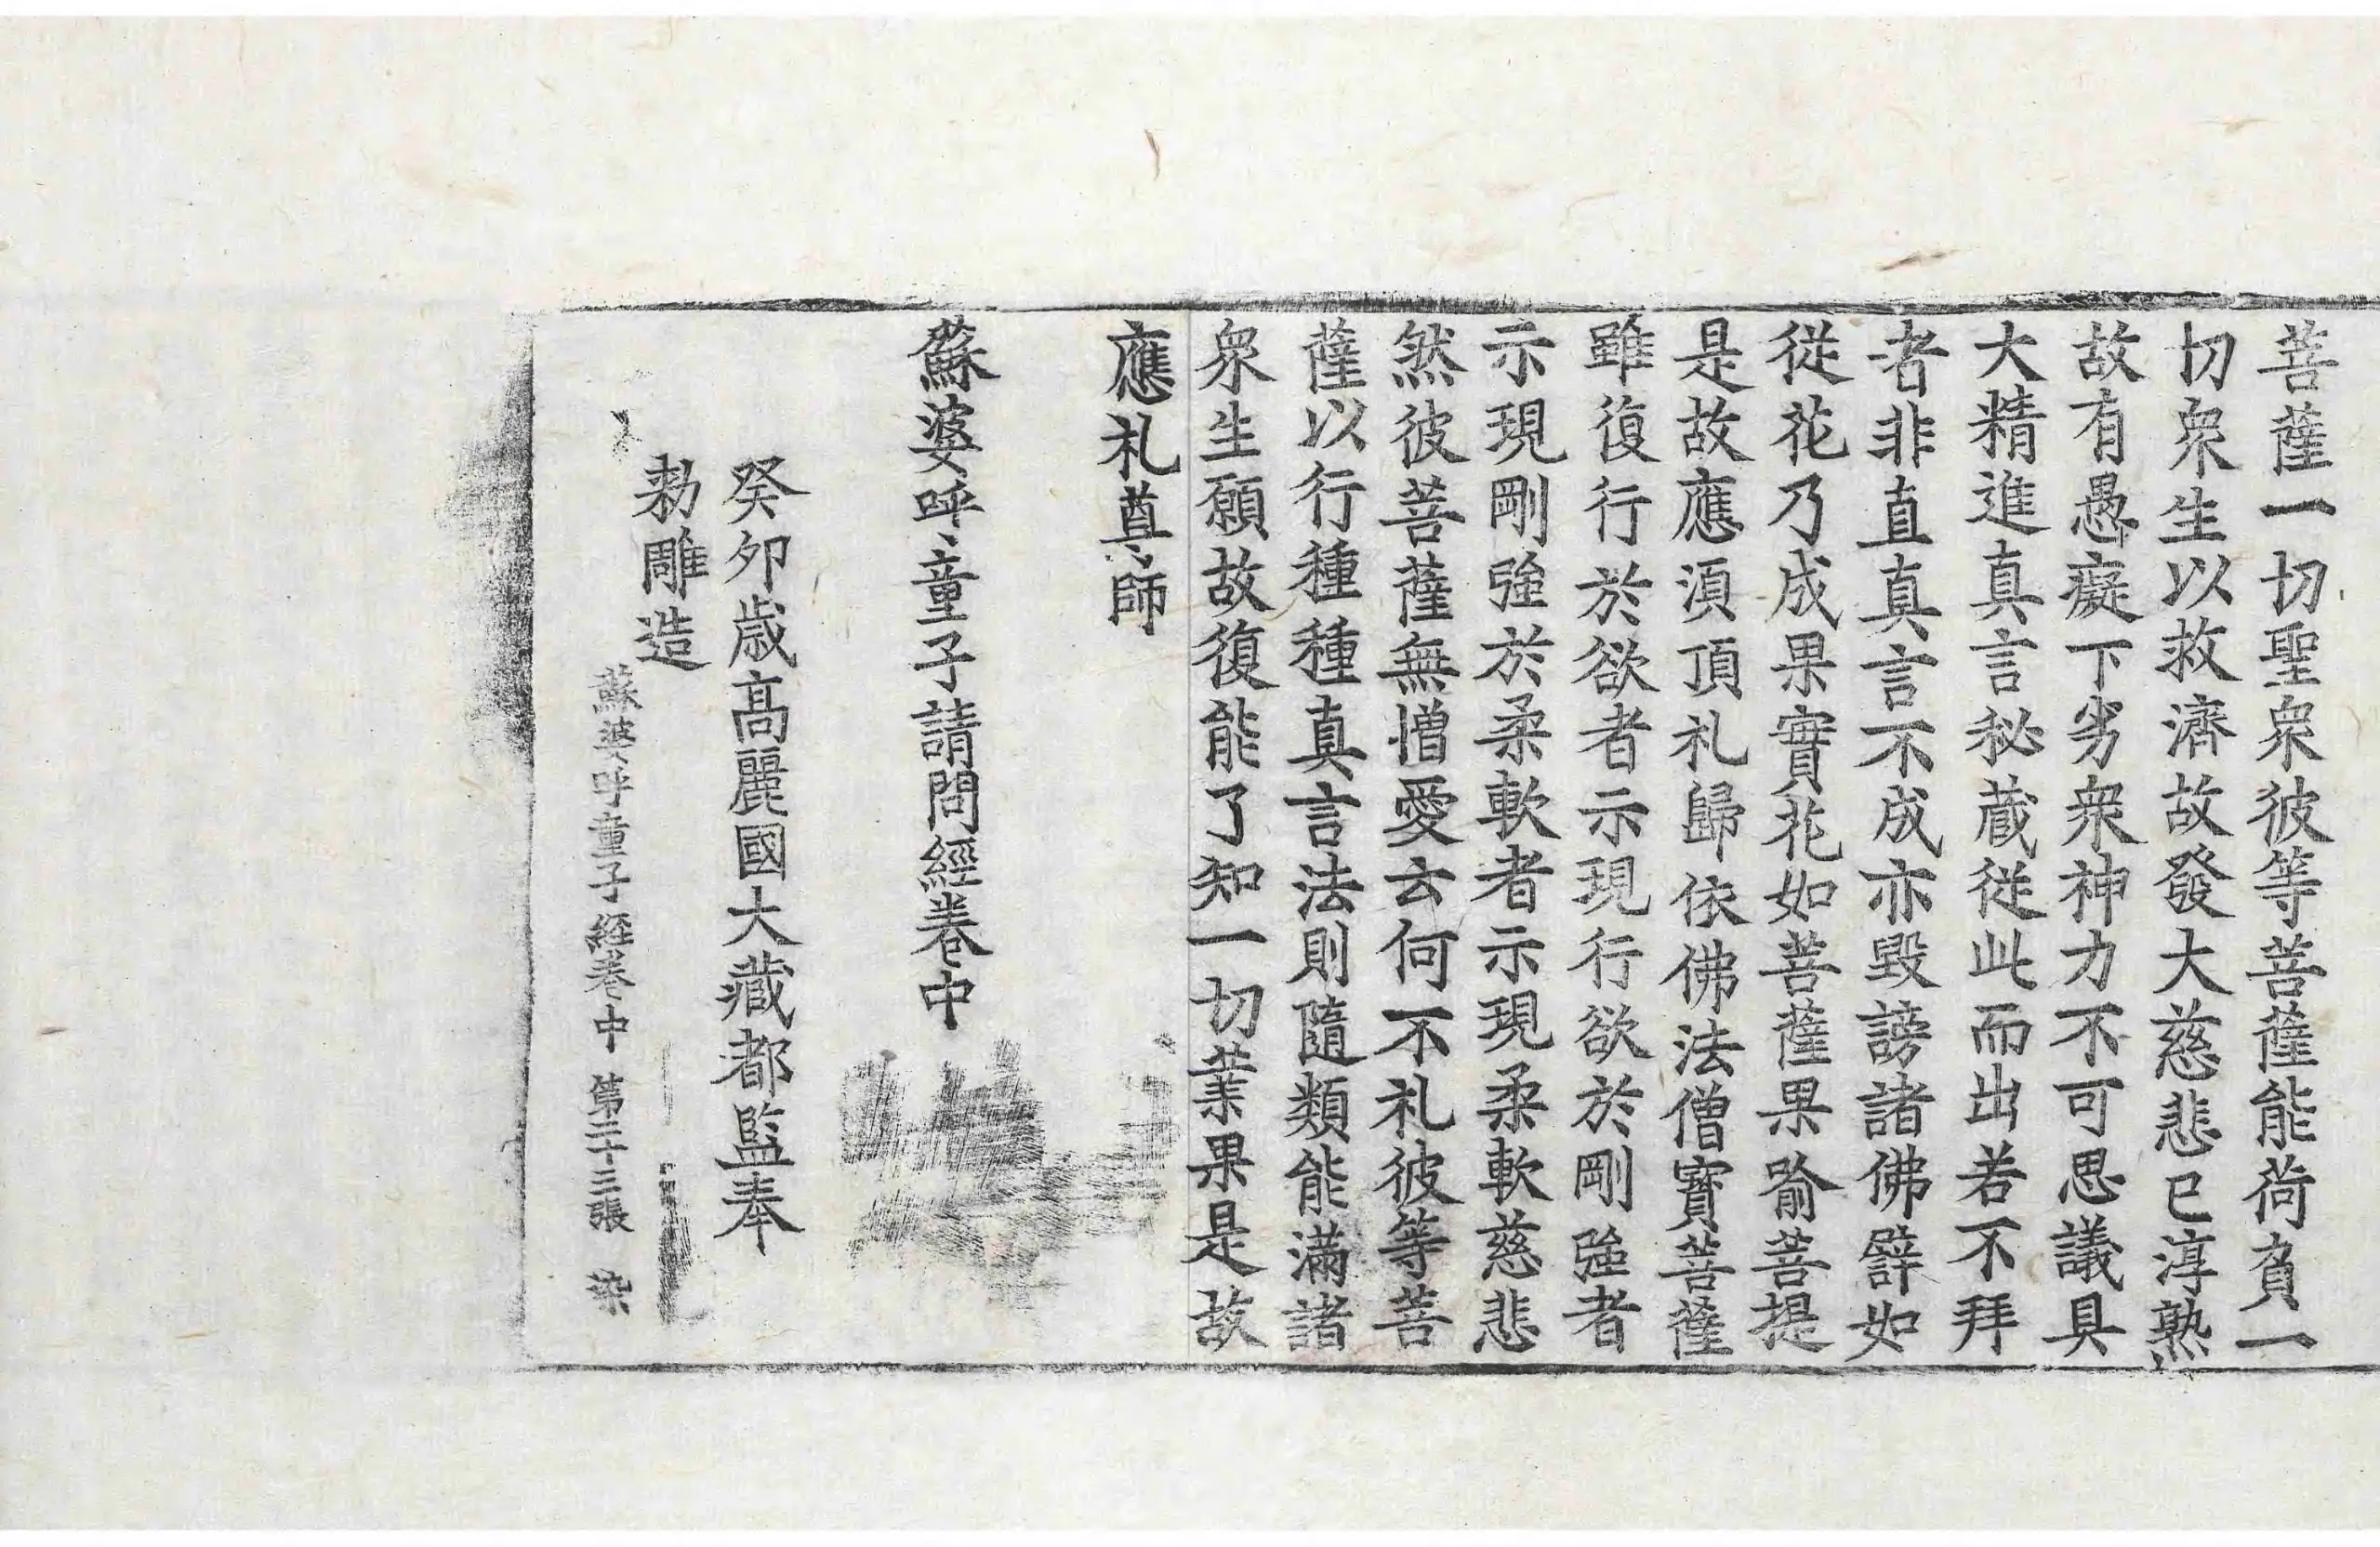 菩薩一切聖衆彼等菩薩能荷負一
切衆生以救濟故發大慈悲已淳熟
故有愚癡下劣衆神力不可思議具
大精進真言秘蔵従此而出若不拜
者非直真言不成亦毀謗諸佛譬如
従花乃成果實花如菩薩果喻菩提
是故應湏頂礼歸依佛法僧寶菩薩
雖復行於欲者示現行欲於剛強者
示現剛強於柔軟者示現柔軟慈悲
然彼菩薩無憎愛云何不礼彼等菩
薩以行種種真言法則隨類能滿諸
衆生願故復能了知一切業果是故
應礼尊師
蘇婆呼童子請問經卷中
癸夘歳高麗國大藏都監奉
勑雕造
蘇婆呼童子經卷中 第二十三張 染